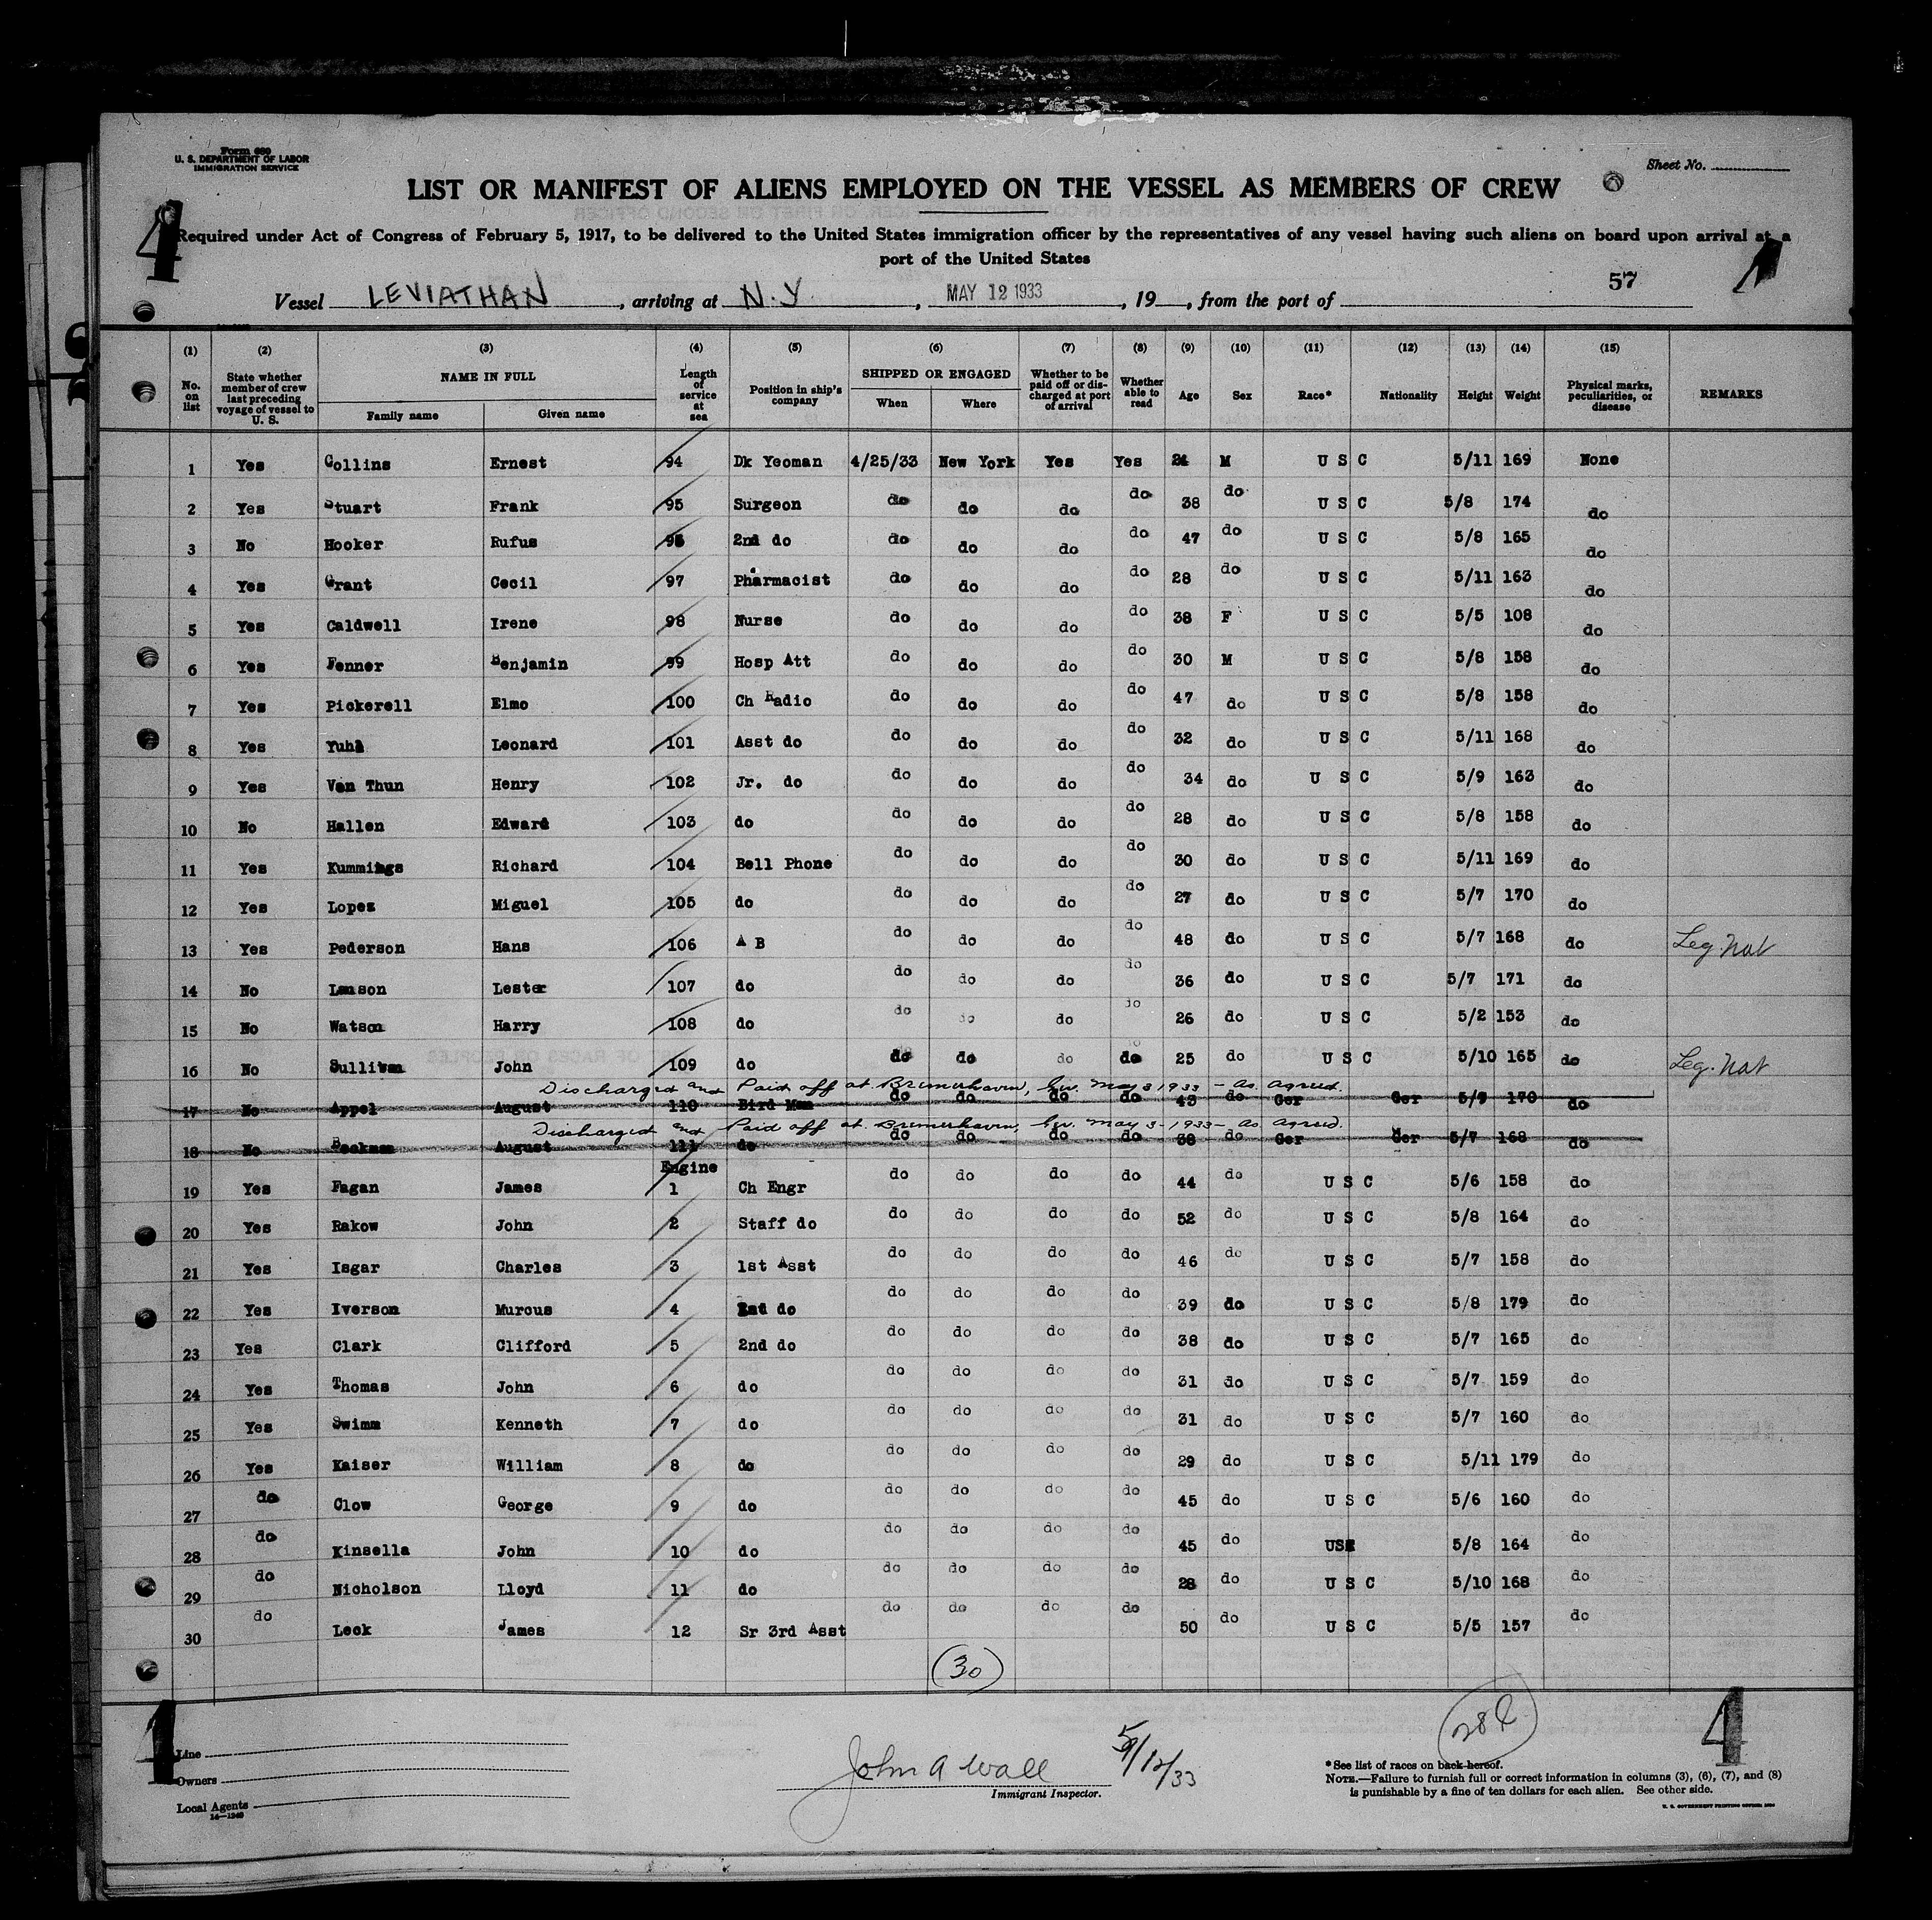 Form 680
U. S. DEPARTMENT OF LABOR
IMMIGRATION SERVICE
Sheet No.
LIST OR MANIFEST OF ALIENS EMPLOYED ON THE VESSEL AS MEMBERS OF CREW
4
Required under Act of Congress of February 5, 1917, to be delivered to the United States immigration officer by the representatives of any vessel having such aliens on board upon arrival at a
port of the United States
57
Vessel LEVIATHAN, arriving at N.Y, MAY 12 1933, 19, from the port of
(1) (2) (3) (4) (5) (6) (7) (8) (9) (10) (11) (12) (13) (14) (15)
No. on list State whether member of crew last preceding voyage of vessel to U. S. NAME IN FULL Family name Given name Length of service at sea Position in ship's company SHIPPED OR ENGAGED When Where Whether to be paid off or discharged at port of arrival Whether able to read Age Sex Race* Nationality Height Weight Physical marks, peculiarities, or disease REMARKS
1 Yes Collins Ernest 94 Dk Yeoman 4/25/33 New York Yes Yes 24 M U S C 5/11 169 None
2 Yes Stuart Frank 95 Surgeon do do do do 38 do U S C 5/8 174 do
3 No Hooker Rufus 96 2nd do do do do do 47 do U S C 5/8 165 do
4 Yes Grant Cecil 97 Pharmacist do do do do 28 do U S C 5/11 163 do
5 Yes Caldwell Irene 98 Nurse do do do do 38 F U S C 5/5 108 do
6 Yes Fenner Benjamin 99 Hosp Att do do do do 30 M U S C 5/8 158 do
7 Yes Pickerell Elmo 100 Ch Radio do do do do 47 do U S C 5/8 158 do
8 Yes Yuhl Leonard 101 Asst do do do do do 32 do U S C 5/11 168 do
9 Yes Van Thun Henry 102 Jr. do do do do do 34 do U S C 5/9 163 do
10 No Hallen Edward 103 do do do do do 28 do U S C 5/8 158 do
11 Yes Kummings Richard 104 Bell Phone do do do do 30 do U S C 5/11 169 do
12 Yes Lopez Miguel 105 do do do do do 27 do U S C 5/7 170 do
13 Yes Pederson Hans 106 A B do do do do 48 do U S C 5/7 168 do Leg. Nat
14 No Lamson Lester 107 do do do do do 36 do U S C 5/7 171 do
15 No Watson Harry 108 do do do do do 26 do U S C 5/2 153 do
16 No Sullivan John 109 do do do do do 25 do U S C 5/10 165 do Leg. Nat
Discharged and Paid off at Bremerhaven, Ger. May 3 1933 - As Agreed.
17 No Appel August 110 Bird Man do do do do 43 do Ger Ger 5/7 170 do
Discharged and Paid off at Bremerhaven, Ger. May 3-1933- As Agreed.
18 No Beekman August 111 do do do do do 38 do Ger Ger 5/7 168 do
Engine
19 Yes Fagan James 1 Ch Engr do do do do 44 do U S C 5/6 158 do
20 Yes Rakow John 2 Staff do do do do do 52 do U S C 5/8 164 do
21 Yes Isgar Charles 3 1st Asst do do do do 46 do U S C 5/7 158 do
22 Yes Iverson Murcus 4 do do do do do 39 do U S C 5/8 179 do
23 Yes Clark Clifford 5 2nd do do do do do 38 do U S C 5/7 165 do
24 Yes Thomas John 6 do do do do do 31 do U S C 5/7 159 do
25 Yes Swimm Kenneth 7 do do do do do 31 do U S C 5/7 160 do
26 Yes Kaiser William 8 do do do do do 29 do U S C 5/11 179 do
27 do Clow George 9 do do do do do 45 do U S C 5/6 160 do
28 do Kinsella John 10 do do do do do 45 do US 5/8 164 do
29 do Nicholson Lloyd 11 do do do do do 28 do U S C 5/10 168 do
30 do Leck James 12 Sr 3rd Asst do do do do 50 do U S C 5/5 157 do
(30)
4
Line
Owners
Local Agents
14—1240
John A Wall 5/12/33
Immigrant Inspector.
*See list of races on back hereof.
NOTE.—Failure to furnish full or correct information in columns (3), (6), (7), and (8)
is punishable by a fine of ten dollars for each alien. See other side.